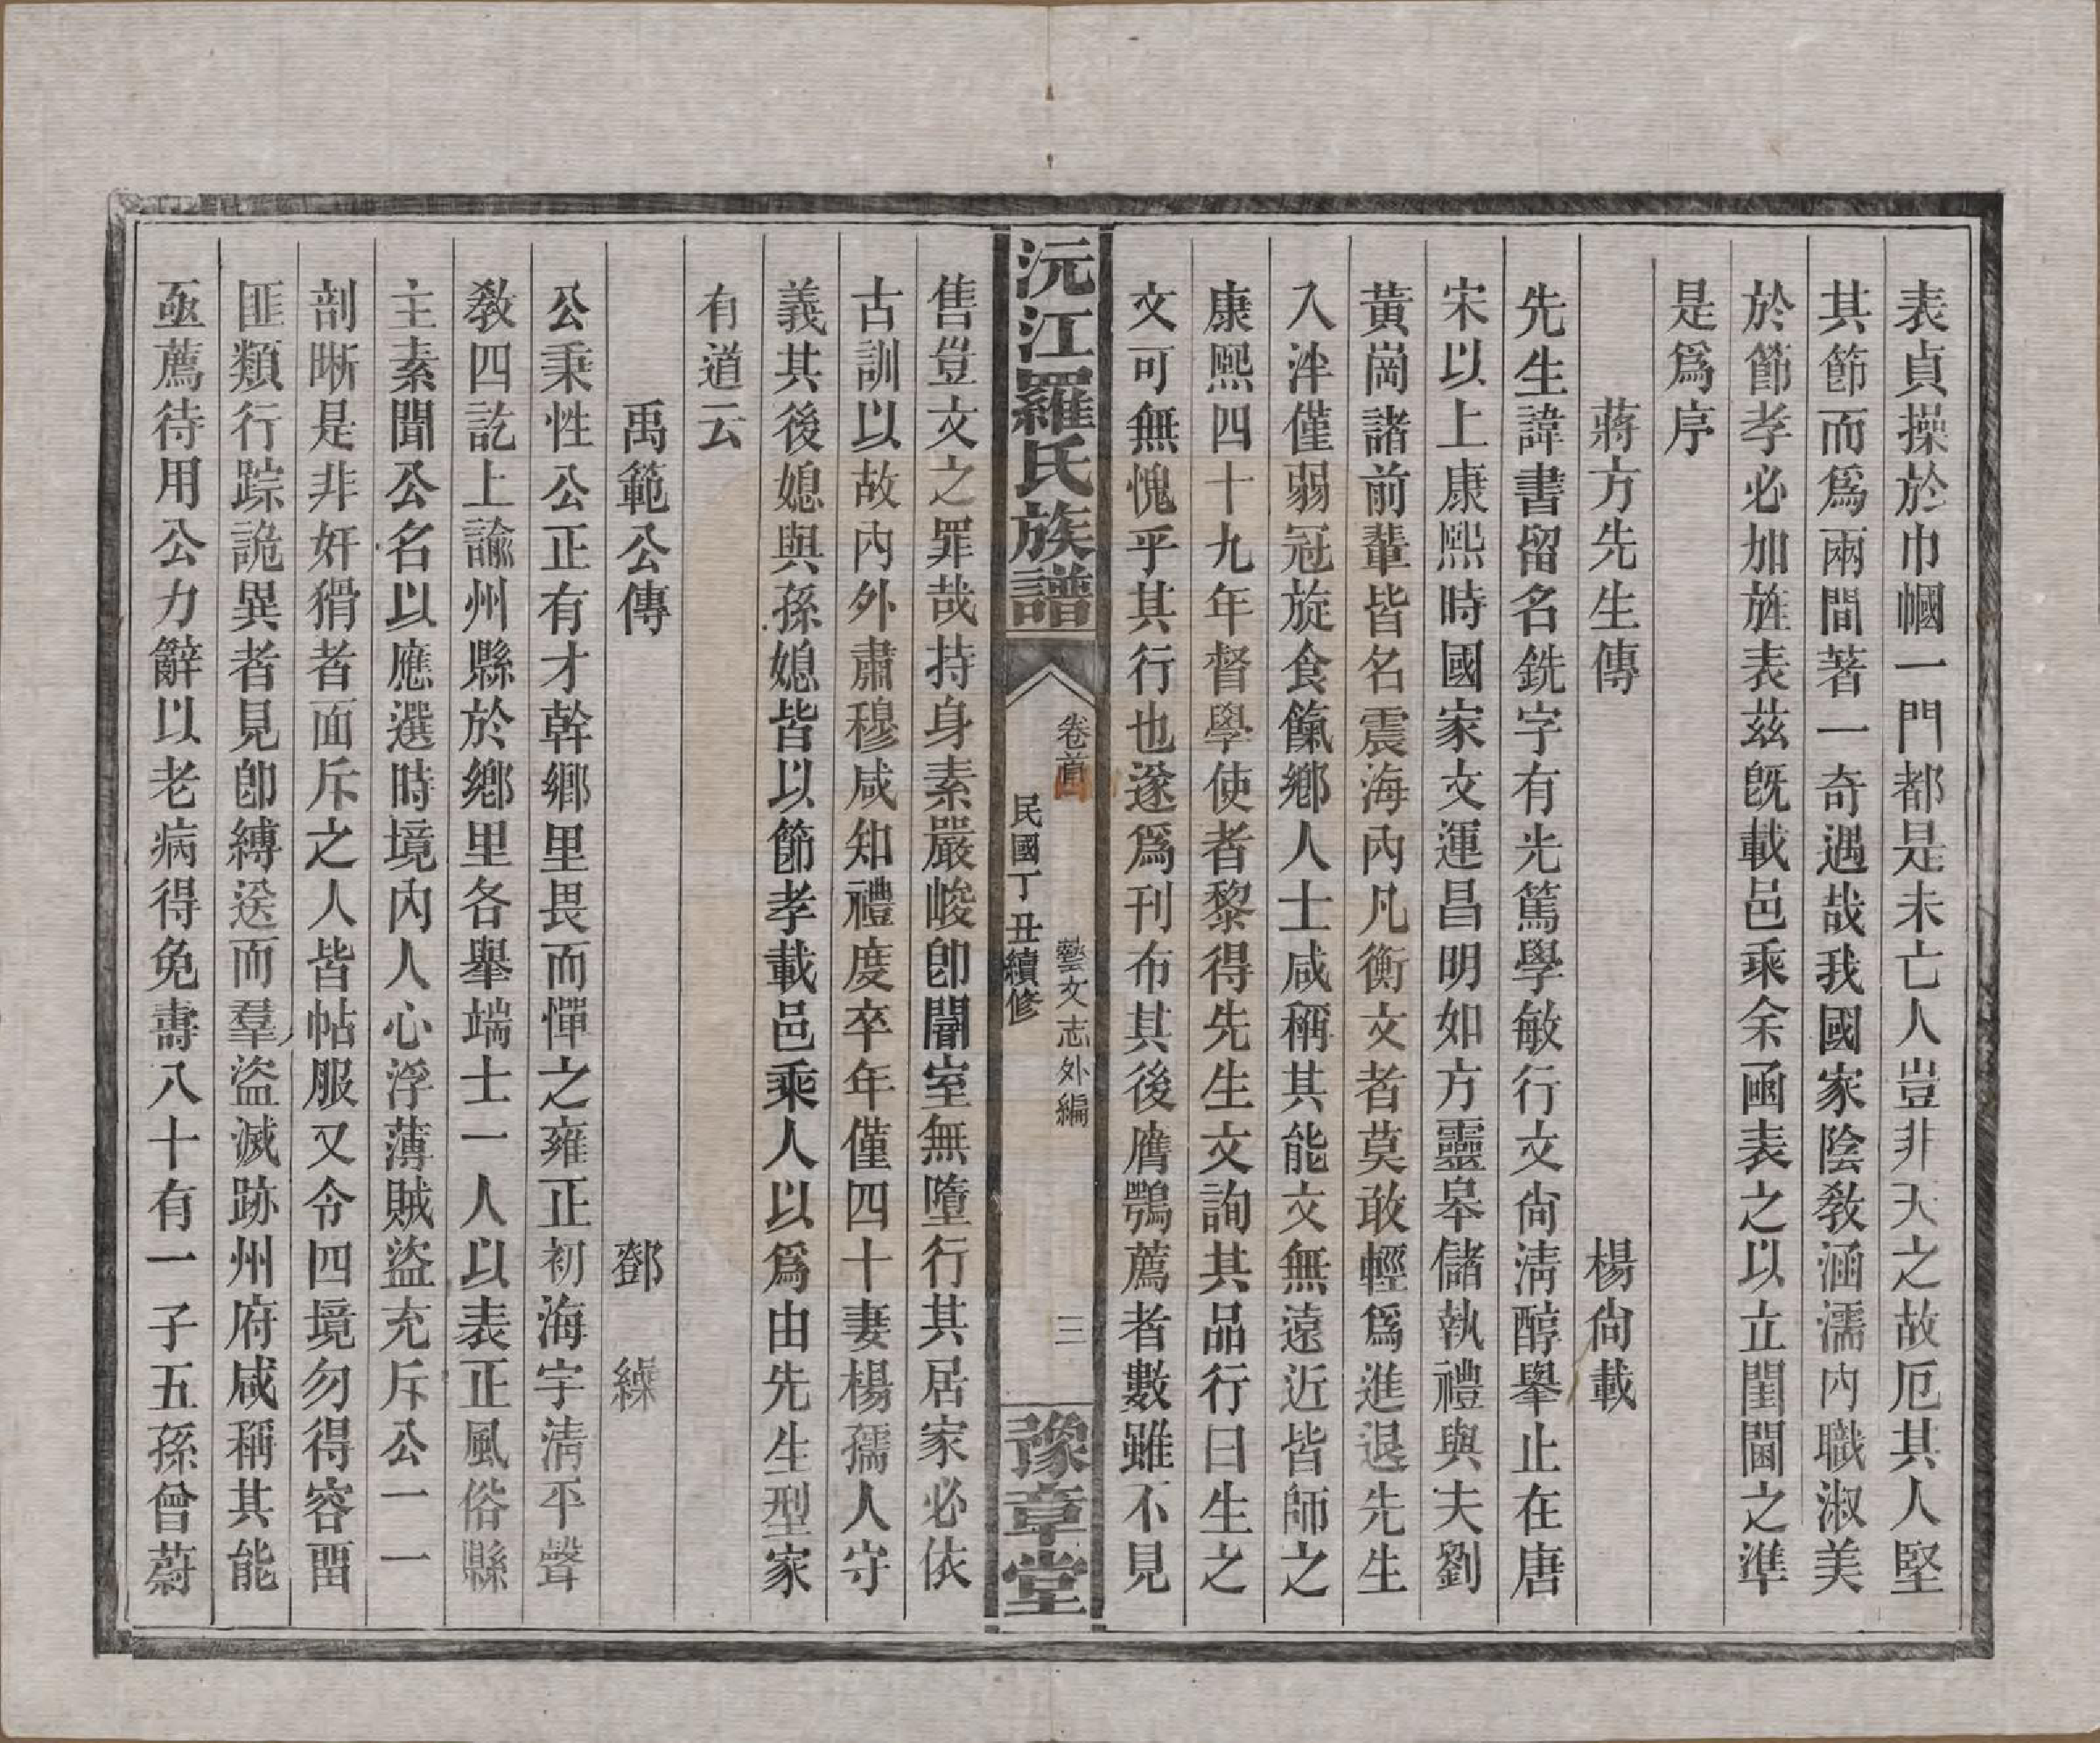 表貞操於巾幗一門都是未亡人豈非天之故厄其人堅
其節而爲兩間著一奇遇哉我國家陰敎涵濡內職淑美
於節孝必加旌表茲旣載邑乘余函表之以立閨閫之準
是爲序
蔣方先生傳　楊尙載
先生諱書留名銑字有光篤學敏行文尙淸醇舉止在唐
宋以上康熙時國家文運昌明如方靈皋儲執禮與夫劉
黃崗諸前輩皆名震海內凡衡文者莫敢輕爲進退先生
入泮僅弱冠旋食餼鄉人士咸稱其能文無遠近皆師之
康熙四十九年督學使者黎得先生文詢其品行曰生之
文可無愧乎其行也遂爲刊布其後膺鶚薦者數雖不見
沅江羅氏族譜　卷首　藝文志外編　三　民國丁丑續修　豫章堂
售豈文之罪哉持身素嚴峻卽闇室無墮行其居家必依
古訓以故內外肅穆咸知禮度卒年僅四十妻楊孺人守
義其後媳與孫媳皆以節孝載邑乘人以爲由先生型家
有道云
禹範公傳　鄧　繰
公秉性公正有才幹鄉里畏而憚之雍正初海宇淸平聲
敎四訖上諭州縣於鄉里各舉端士一人以表正風俗縣
主素聞公名以應選時境內人心浮薄賊盜充斥公一一
剖晰是非奸猾者面斥之人皆帖服又令四境勿得容畱
匪類行踪詭異者見卽縛送而羣盜滅跡州府咸稱其能
亟薦待用公力辭以老病得免壽八十有一子五孫曾蔚